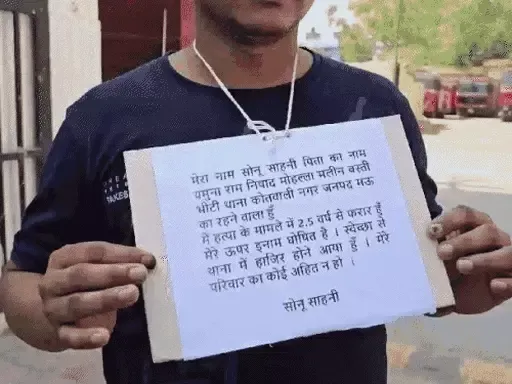 मेरा नाम सोनू साहनी पिता का नाम
यमुना राम निषाद मोहल्ला मलीन वस्ती
भीटी थाना कोतवाली नगर जनपद मऊ
का रहने वाला हुँ
में हत्या के मामले में 2.5 वर्ष से फरार हुँ
मेरे ऊपर इनाम घोषित है । स्वेच्छा से
थाना में हाजिर होने आया हुँ । मेरे
परिवार का कोई अहित न हो ।
सोनू साहनी